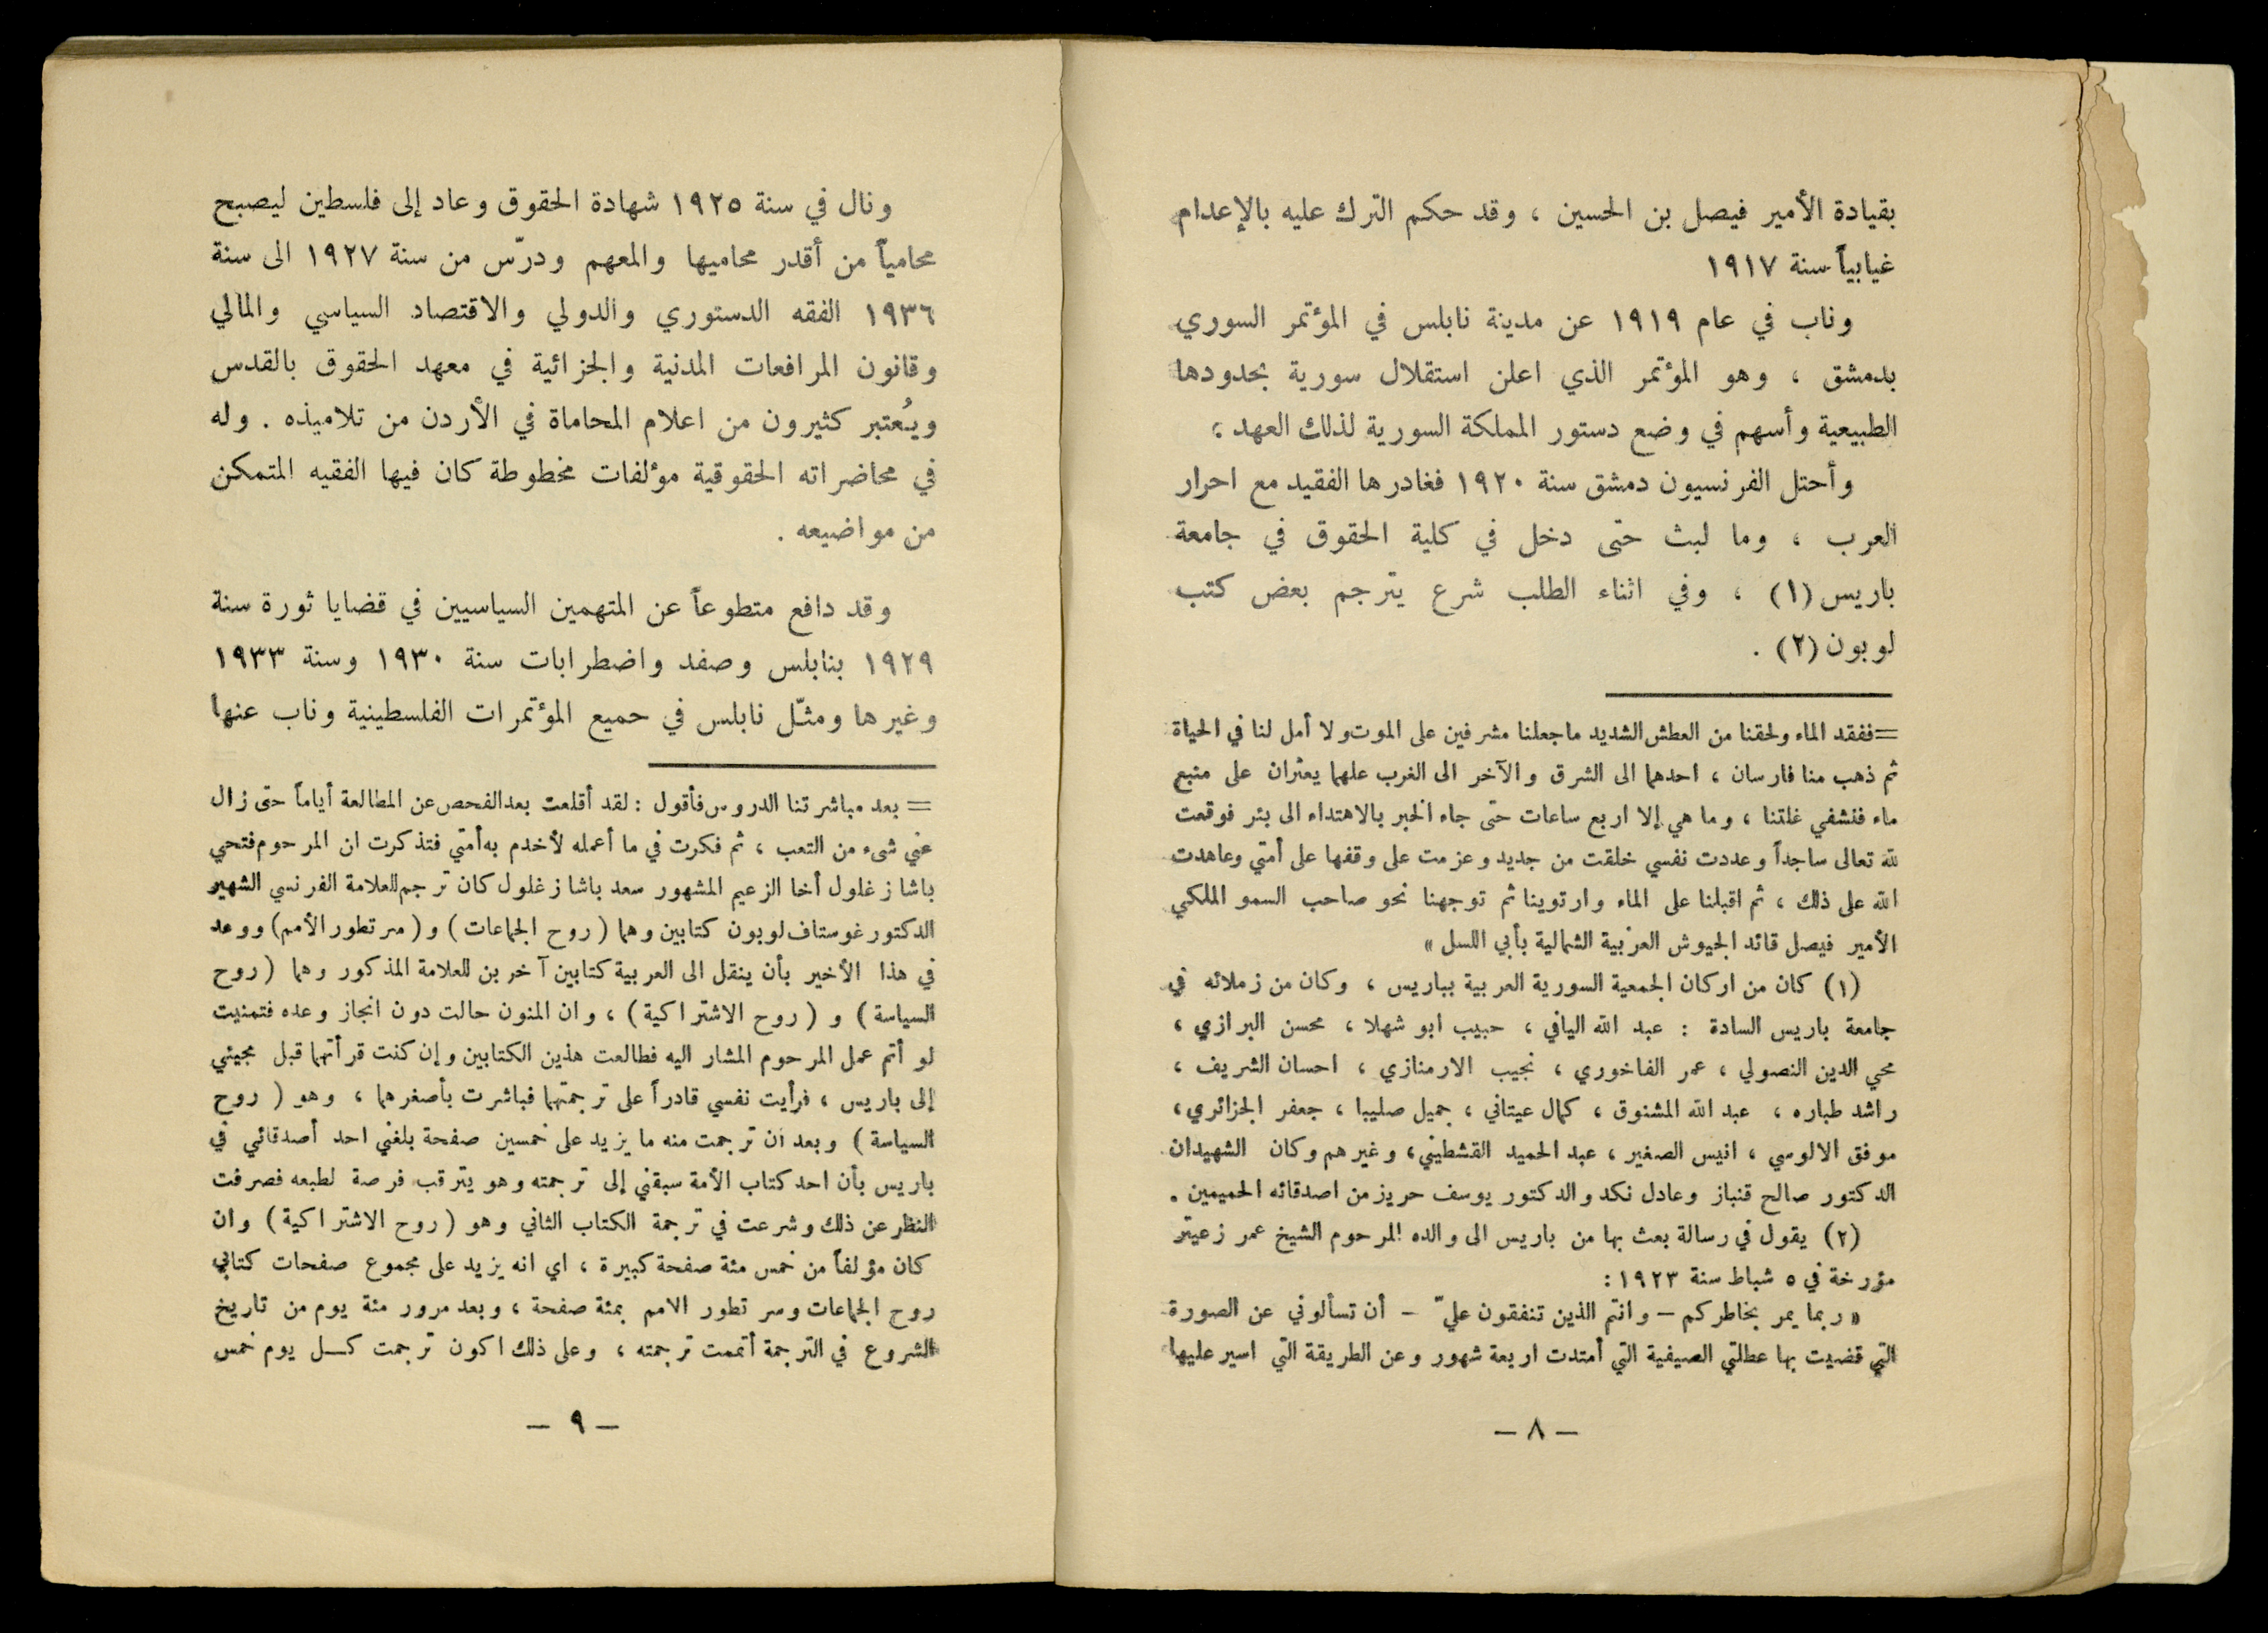 بقيادة الأمير فيصل بن الحسين ، وقد حكم الترك عليه بالإعدام
غيابياً سنة ١٩١٧
وناب في عام ١٩١٩ عن مدينة نابلس في المؤتمر السوري
بدمشق ، وهو المؤتمر الذي اعلن استقلال سورية بحدودها
الطبيعية وأسهم في وضع دستور المملكة السورية لذلك العهد .
وأحتل الفرنسيون دمشق سنة ١٩٢٠ فغادرها الفقيد مع احرار
العرب ، وما لبث حتى دخل في كلية الحقوق في جامعة
باريس (١) ، وفي اثناء الطلب شرع يترجم بعض كتب
لوبون (٢) .
=ففقد الماء ولحقنا من العطش الشديد ما جعلنا مشرفين على الموت ولا أمل لنا في الحياة
ثم ذهب منا فارسان ، احدهما الى الشرق والآخر الى الغرب علهما يعثران على منبع
ماء فنشفي غلتنا ، وما هي إلا اربع ساعات حتى جاء الخبر بالاهتداء الى بئر فوقعت
لله تعالى ساجداً وعددت نفسي خلقت من جديد وعزمت على وقفها على أمتي وعاهدت
الله على ذلك ، ثم اقبلنا على الماء وارتوينا ثم توجهنا نحو صاحب السمو الملكي
الأمير فيصل قائد الجيوش العربية الشمالية بأبي اللسل »
(١) كان من اركان الجمعية السورية العربية بباريس ، وكان من زملائه في
جامعة باريس السادة : عبد الله اليافي ، حبيب ابو شهلا ، محسن البرازي ،
محي الدين النصولي ، عمر الفاخوري ، نجيب الارمنازي ، احسان الشريف ،
راشد طباره ، عبد الله المشنوق ، كمال عيتاني ، جميل صليبا ، جعفر الجزائري ،
موفق الالوسي ، انيس الصغير ، عبد الحميد القشطيني، وغيرهم وكان الشهيدان
الدكتور صالح قنباز وعادل نكد والدكتور يوسف حريز من اصدقائه الحميمين .
(٢) يقول في رسالة بعث بها من باريس الى والده المرحوم الشيخ عمر زعيتر
مؤرخة في ٥ شباط سنة ١٩٢٣ :
« ربما يمر بخاطركم – وانتم الذين تنفقون عليّ – أن تسألوني عن الصورة
التي قضيت بها عطلتي الصيفية التي أمتدت اربعة شهور وعن الطريقة التي اسير عليها
– ٨ –
ونال في سنة ١٩٢٥ شهادة الحقوق وعاد إلى فلسطين ليصبح
محامياً من أقدر محاميها والمعهم ودرّس من سنة ١٩٢٧ الى سنة
١٩٣٦ الفقه الدستوري والدولي والاقتصاد السياسي والمالي
وقانون المرافعات المدنية والجزائية في معهد الحقوق بالقدس
ويُعتبر كثيرون من اعلام المحاماة في الأردن من تلاميذه . وله
في محاضراته الحقوقية مؤلفات مخطوطة كان فيها الفقيه المتمكن
من مواضيعه .
وقد دافع متطوعاً عن المتهمين السياسيين في قضايا ثورة سنة
١٩٢٩ بنابلس وصفد واضطرابات سنة ١٩٣٠ وسنة ١٩٣٣
وغيرها ومثّل نابلس في حميع المؤتمرات الفلسطينية وناب عنها
= بعد مباشرتنا الدروس فأقول : لقد أقلعت بعد الفحص عن المطالعة أياماً حتى زال
عني شىء من التعب ، ثم فكرت في ما أعمله لأخدم به أمتي فتذكرت ان المرحوم فتحي
باشا زغلول أخا الزعيم المشهور سعد باشا زغلول كان ترجم للعلامة الفرنسي الشهير
الدكتور غوستاف لوبون كتابين وهما ( روح الجماعات ) و ( سر تطور الأمم ) ووعد
في هذا الأخير بأن ينقل الى العربية كتابين آخرين للعلامة المذكور وهما ( روح
السياسة ) و ( روح الاشتراكية ) ، وان المنون حالت دون انجاز وعده فتمنيت
لو أتم عمل المرحوم المشار اليه فطالعت هذين الكتابين وإن كنت قرأتهما قبل مجيئي
إلى باريس ، فرأيت نفسي قادراً على ترجمتهما فباشرت بأصغرهما ، وهو ( روح
السياسة ) وبعد أن ترجمت منه ما يزيد على خمسين صفحة بلغني احد أصدقائي في
باريس بأن احد كتاب الأمة سبقني إلى ترجمته وهو يترقب فرصة لطبعه فصرفت
النظر عن ذلك وشرعت في ترجمة الكتاب الثاني وهو ( روح الاشتراكية ) وان
كان مؤلفاً من خمس مئة صفحة كبيرة ، اي انه يزيد على مجموع صفحات كتابي
روح الجماعات وسر تطور الامم بمئة صفحة ، وبعد مرور مئة يوم من تاريخ
الشروع في الترجمة أتممت ترجمته ، وعلى ذلك اكون ترجمت كـل يوم خمس
– ٩ –